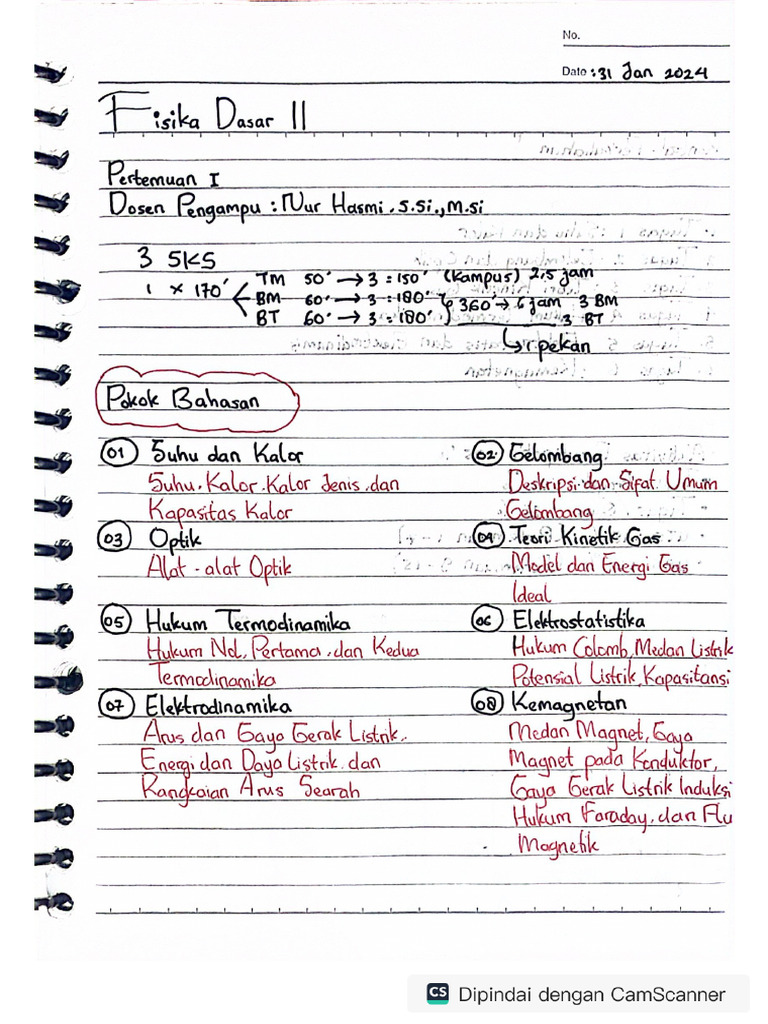 No.
Date : 31 Jan 2024
Fisika Dasar II
Pertemuan I
Dosen Pengampu : Nur Hasmi . S.Si., M.Si
3 SKS
1 x 170'
TM 50' → 3 = 150' (Kampus) 2,5 jam
BM 60' → 3 = 180' 360' → 6 jam 3 BM
BT 60' → 3 = 180' 3 BT
↳ 1 pekan
Pokok Bahasan
01 Suhu dan Kalor
Suhu. Kalor. Kalor Jenis. dan
Kapasitas Kalor
02 Gelombang
Deskripsi dan Sifat Umum
Gelombang
03 Optik
Alat - alat Optik
04 Teori Kinetik Gas
Model dan Energi Gas
Ideal
05 Hukum Termodinamika
Hukum Nol, Pertama, dan Kedua
Termodinamika
06 Elektrostatistika
Hukum Colomb, Medan Listrik
Potensial Listrik, Kapasitansi
07 Elektrodinamika
Arus dan Gaya Gerak Listrik.
Energi dan Daya Listrik. dan
Rangkaian Arus Searah
08 Kemagnetan
Medan Magnet, Gaya
Magnet pada Konduktor,
Gaya Gerak Listrik Induksi
Hukum Faraday, dan Flu
Magnetik
CS Dipindai dengan CamScanner